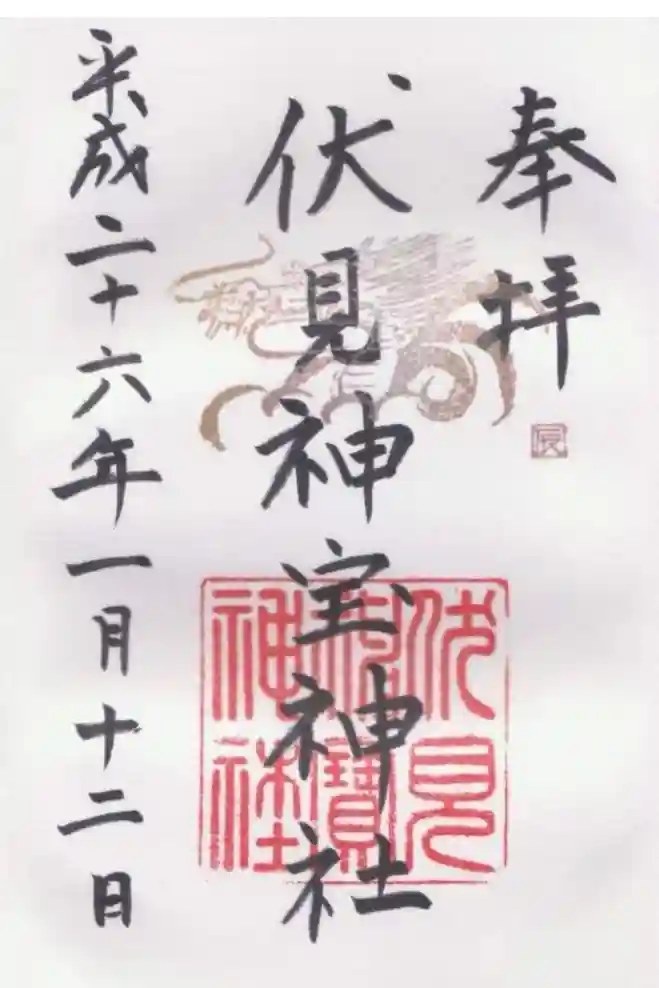 奉拝
辰
伏見神宝神社
伏見
神寶
神社
平成二十六年一月十二日